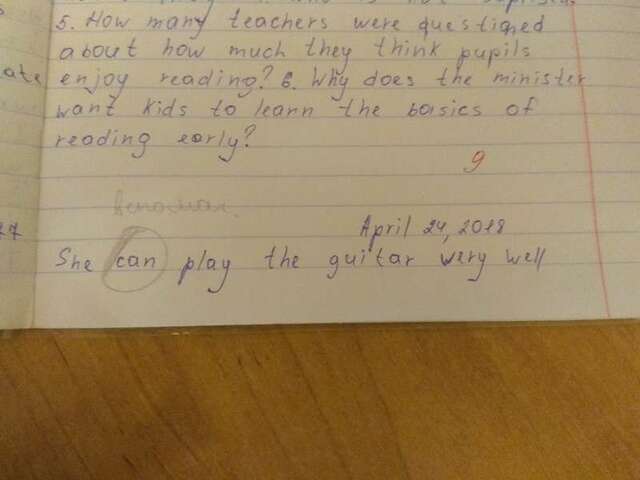 5. How many teachers were questioned
about how much they think pupils
ate enjoy reading? 6. Why does the minister
want kids to learn the basics of
reading early?
9
April 24, 2018
She can play the guitar wery well